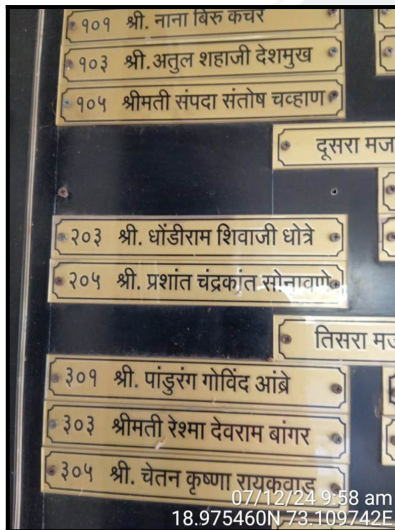 १०१ श्री. नाना बिरु कचरे
१०३ श्री.अतुल शहाजी देशमुख
१०५ श्रीमती संपदा संतोष चव्हाण
दूसरा मज
२०३ श्री. धोंडीराम शिवाजी धोत्रे
२०५ श्री. प्रशांत चंद्रकांत सोनावणे
तिसरा मज
३०१ श्री. पांडुरंग गोविंद आंब्रे
३०३ श्रीमती रेश्मा देवराम बांगर
३०५ श्री. चेतन कृष्णा रायकवाड
07/12/24 9:58 am
18.975460N 73.109742E